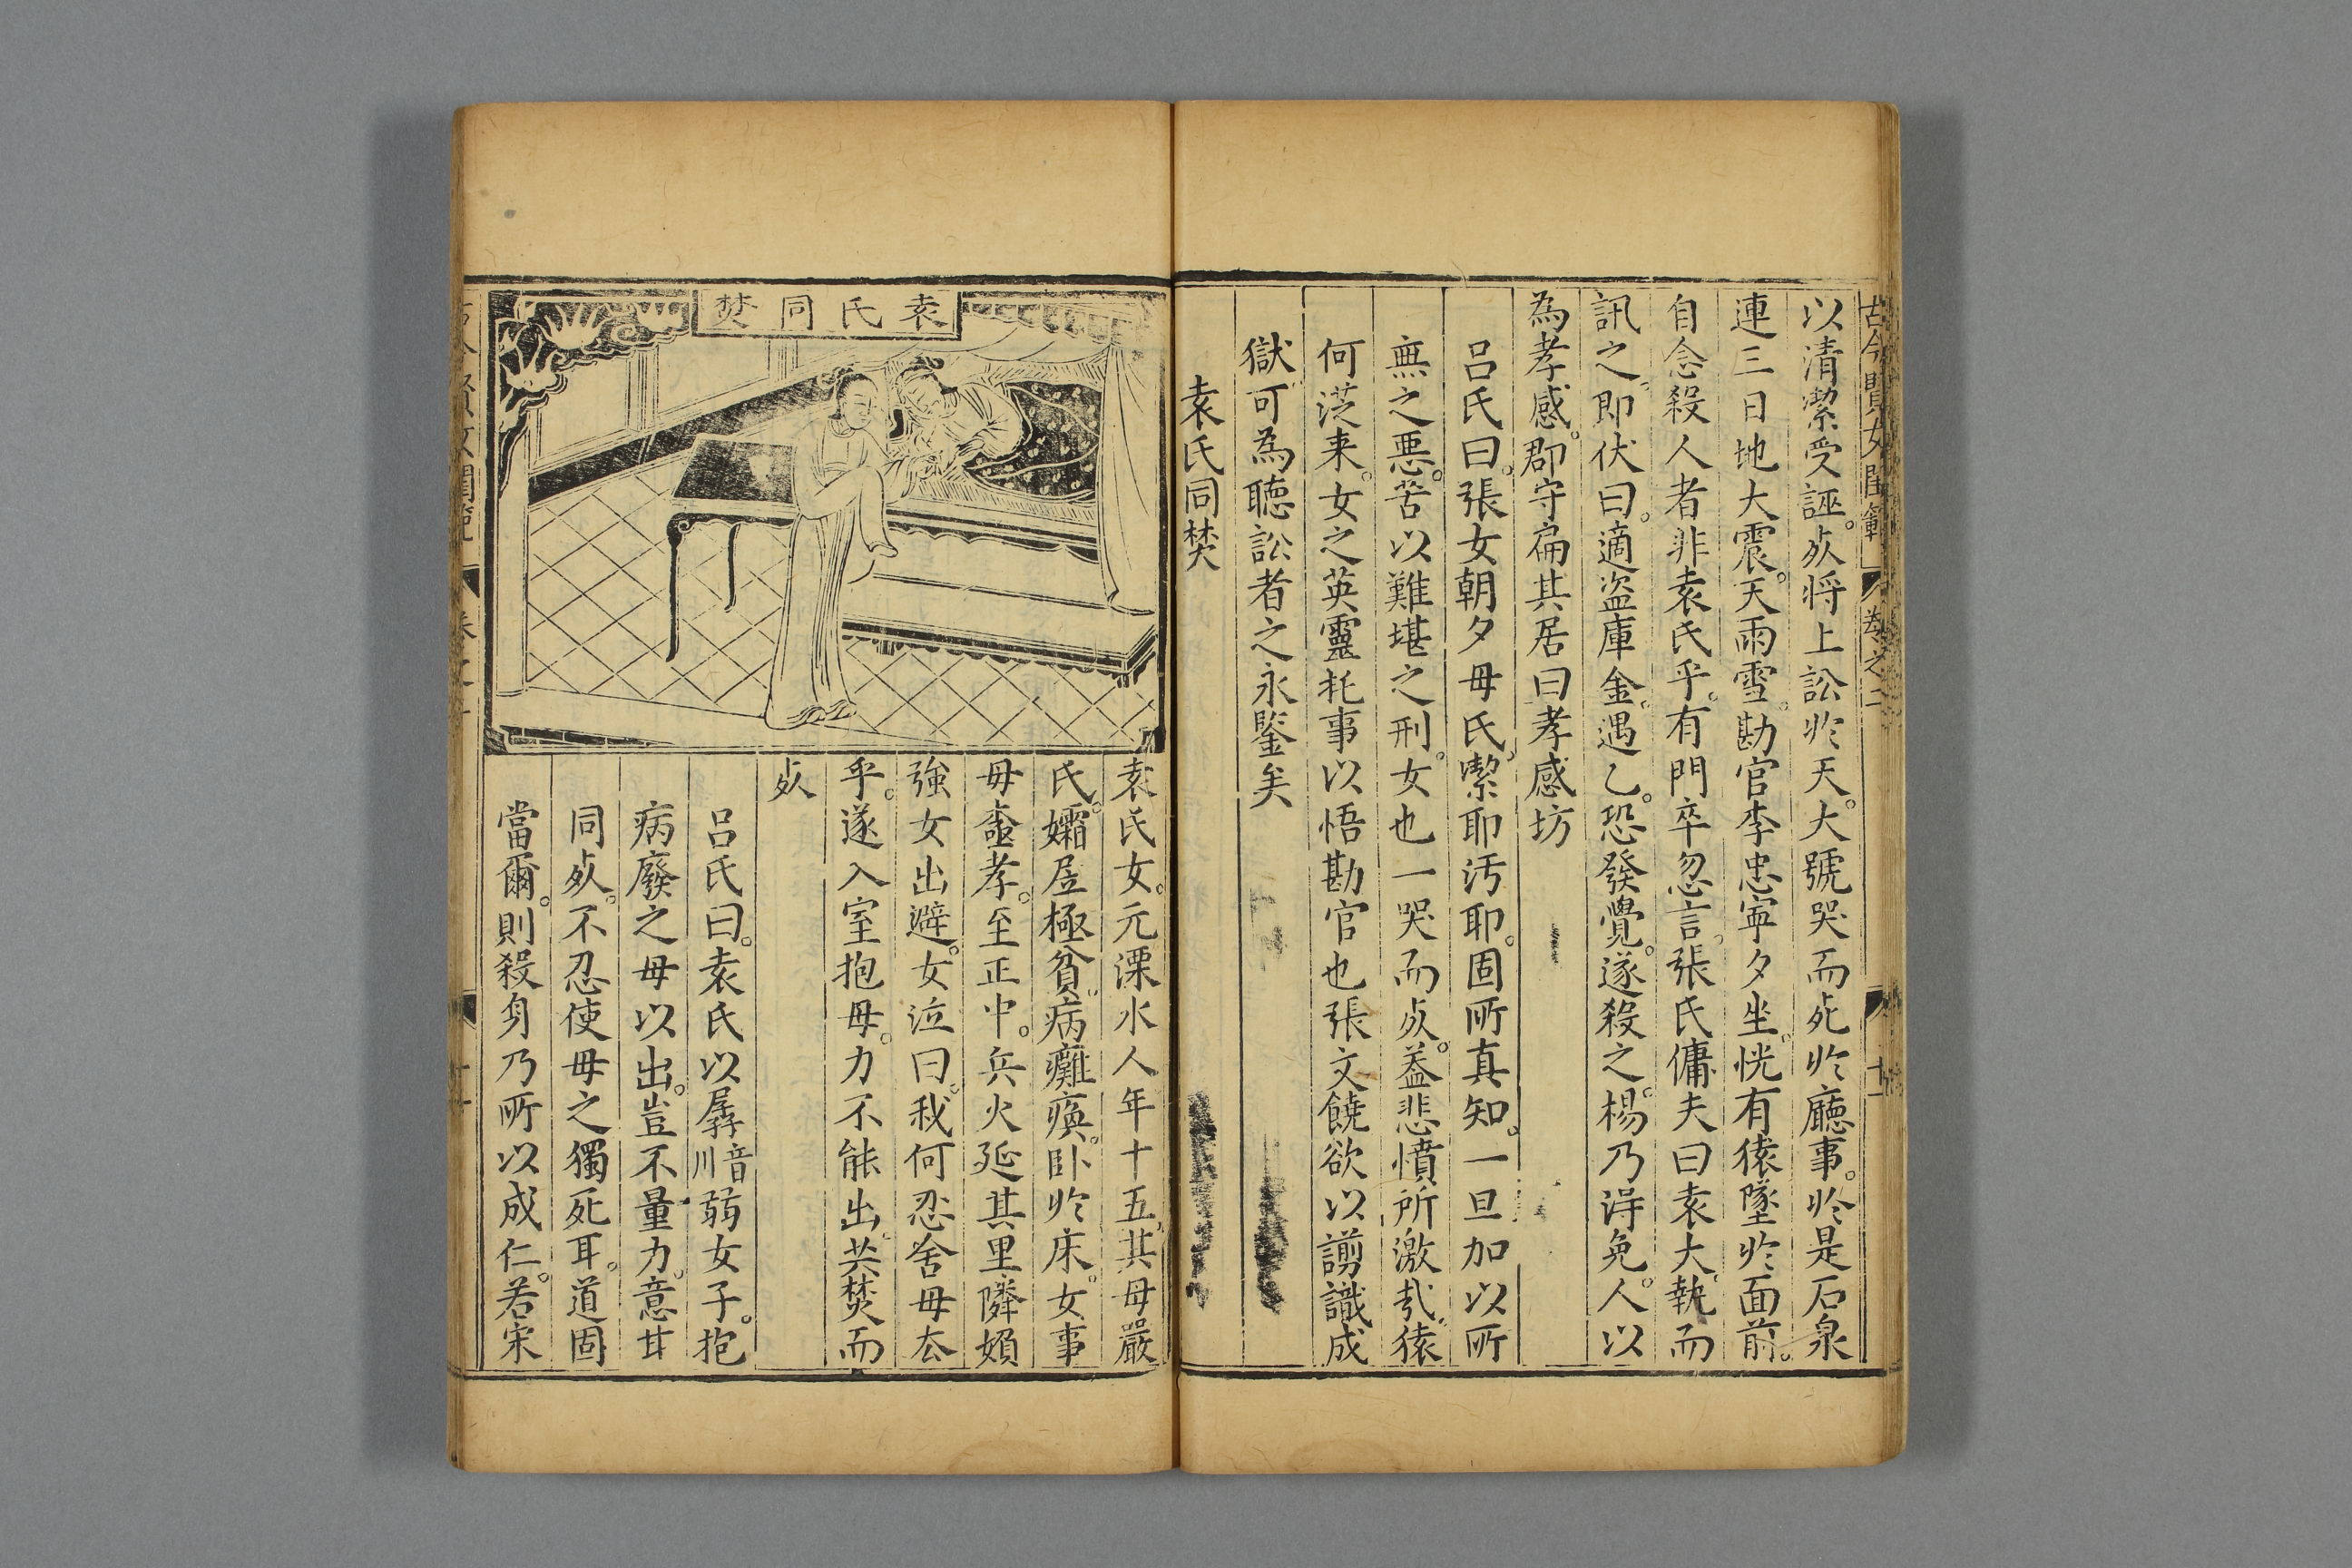 古今賢女閨範 卷之二 十一
以清潔受誣。死將上訟於天。大號哭而死於廳事。於是石泉
連三日地大震。天雨雪。勘官李忠寧夕坐。恍有猿墜於面前。
自念殺人者非袁氏乎。有門卒忽言。張氏傭夫曰袁大。執而
訊之。即伏曰。適盜庫金。遇乙。恐發覺。遂殺之。楊乃得免。人以
為孝感。郡守扁其居曰孝感坊
呂氏曰。張女朝夕母氏。潔耶汚耶。固所真知。一旦加以所
無之惡。苦以難堪之刑。女也一哭而死。葢悲憤所激哉。猿
何從来。女之英靈托事以悟勘官也張文饒欲以謭識成
獄。可為聽訟者之永鑒矣
袁氏同焚
袁氏同焚
袁氏女。元溧水人年十五。其母嚴
氏。孀居極貧。病癱瘓。卧於床。女事
母盡孝。至正中。兵火延其里隣嫂
強女出避。女泣曰。我何忍舍母去
乎。遂入室抱母。力不能出。共焚而
死
呂氏曰。袁氏以孱音川弱女子。抱
病廢之母以出。豈不量力。意甘
同死。不忍使母之獨死耳。道固
當爾。則殺身乃所以成仁。若宋